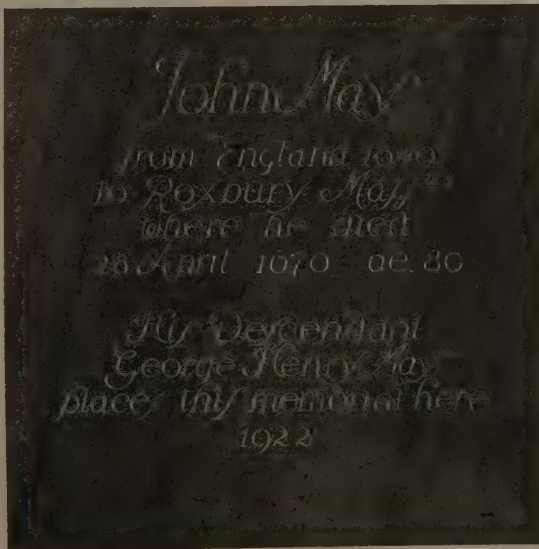 John May
from England 1640
to Roxbury Mass
where he died
28 April 1670 ae. 80
His Descendant
George Henry May
places this memorial here
1922